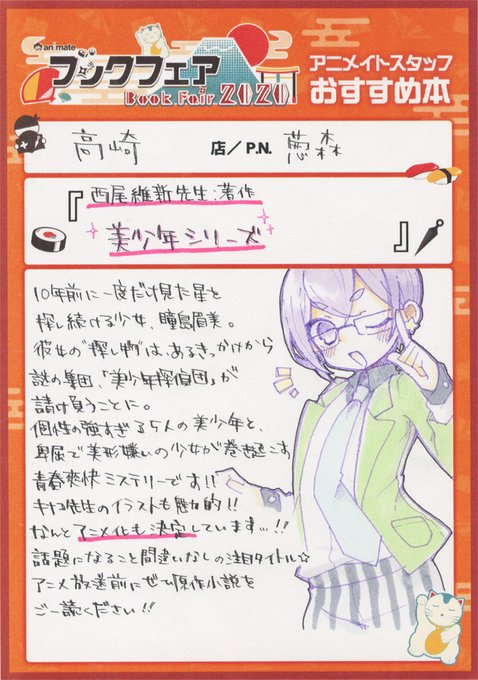 animate
ブックフェア
Book Fair 2020
アニメイトスタッフ
おすすめ本
高崎 店／P.N. 葱森
『西尾維新先生著作
美少年シリーズ』
10年前に一度だけ見た星を
探し続ける少女、瞳島眉美。
彼女の"探し物"は、あるきっかけから
謎の集団、「美少年探偵団」が
請け負うことに。
個性の強すぎる5人の美少年と、
卑屈で美形嫌いの少女が巻き起こす
青春爽快ミステリーです!!
キナコ先生のイラストも魅力的!!
なんとアニメ化も決定しています…!!
話題になること間違いなしの注目タイトル☆
アニメ放送前にぜひ原作小説を
ご一読ください!!